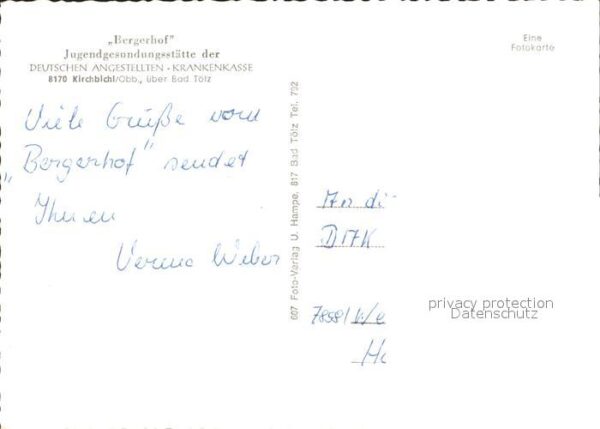 „Bergerhof"
Jugendgesundungsstätte der
DEUTSCHEN ANGESTELLTEN - KRANKENKASSE
8170 Kirchbichl/Obb., über Bad Tölz
Eine
Fotokarte
Viele Grüße vom
„Bergerhof" sendet
Ihnen
Verena Weber
667 Foto-Verlag U. Hampe, 817 Bad Tölz Tel. 792
An di
DAK
7858/ We
privacy protection
Datenschutz